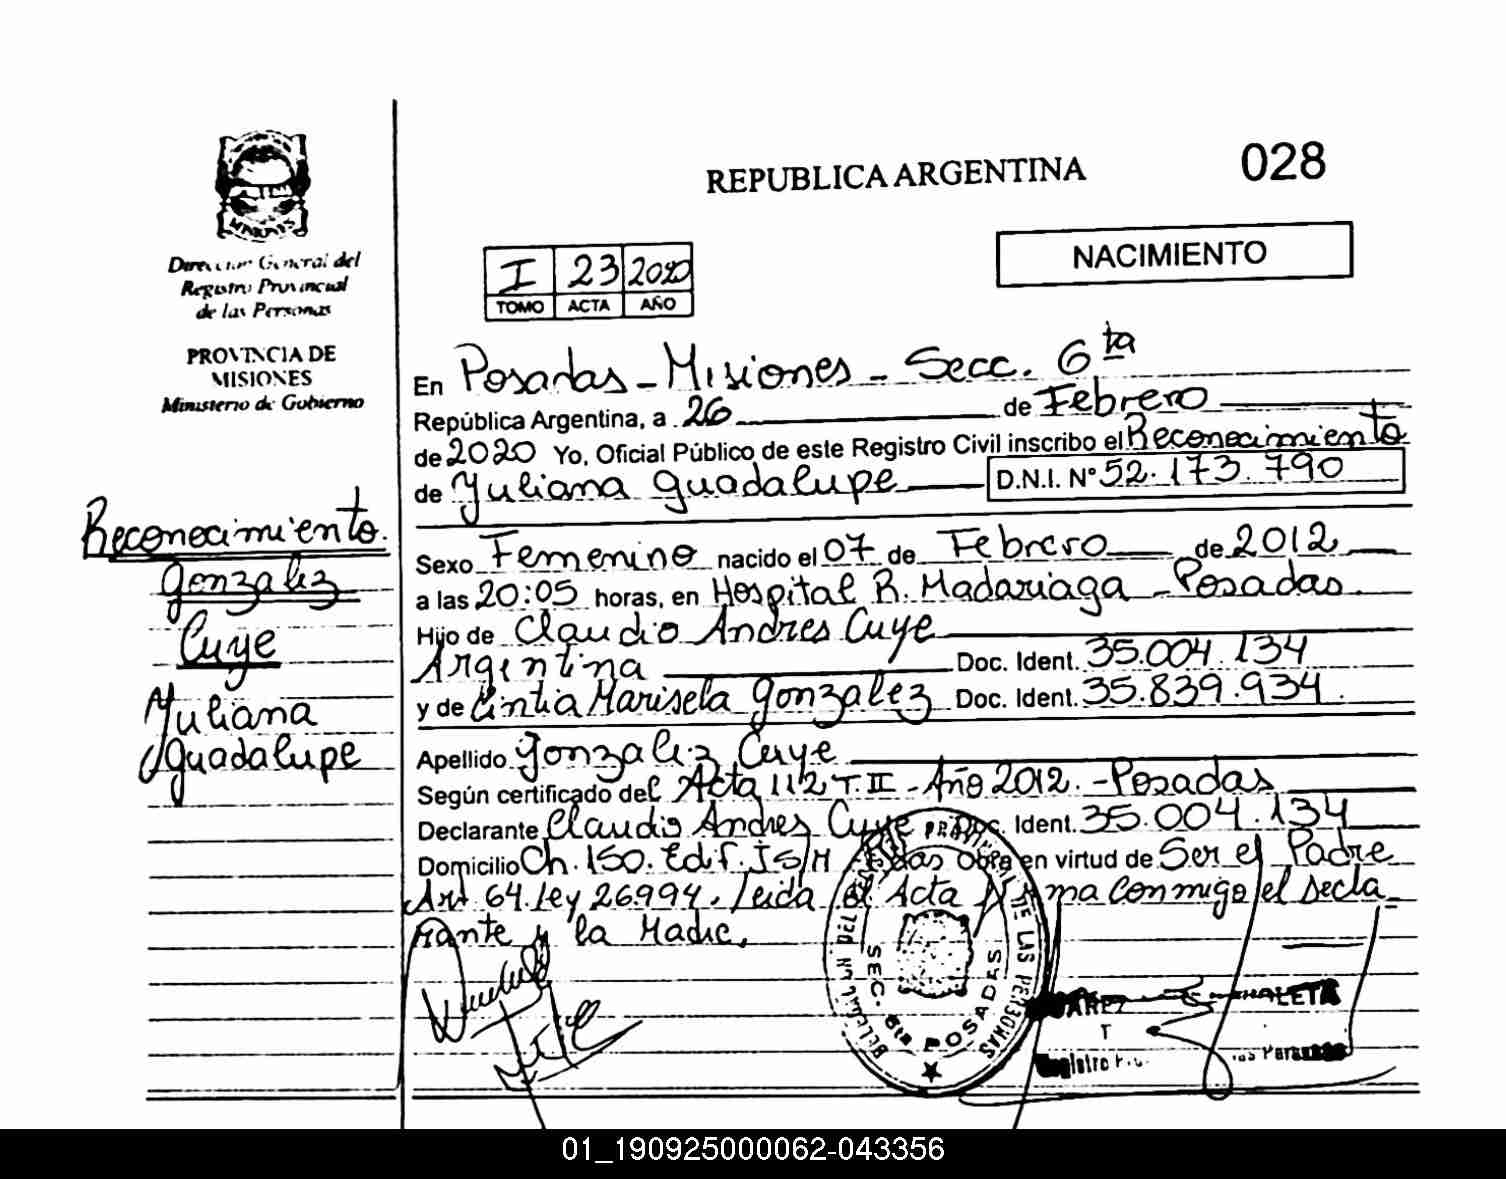 REPUBLICA ARGENTINA
028
NACIMIENTO
Dirección General del
Registro Provincial
de las Personas
PROVINCIA DE
MISIONES
Ministerio de Gobierno
I 23 2020
TOMO ACTA AÑO
En Posadas - Misiones - Secc. 6ta
República Argentina, a 26 de Febrero
de 2020 Yo, Oficial Público de este Registro Civil inscribo el Reconocimiento
de Yuliana Guadalupe D.N.I. N° 52.173.790
Sexo Femenino nacido el 07 de Febrero de 2012
a las 20:05 horas, en Hospital R. Madariaga - Posadas.
Hijo de Claudio Andres Cuye
Argentina Doc. Ident. 35.004.134
y de Cintia Marisela Gonzalez Doc. Ident. 35.839.934.
Apellido Gonzalez Cuye
Según certificado del Acta 112 T. II - Año 2012. - Posadas
Declarante Claudio Andres Cuye Doc. Ident. 35.004.134
Domicilio Ch. 150. Edif. Obra en virtud de Ser el Padre
Art 64. Ley 26994. Leida el Acta firma conmigo el decla
rante y la Madre.
Reconocimiento.
Gonzalez
Cuye
Yuliana
Guadalupe
PROVINCIAL DE LAS PERSONAS
SEC. 6ta POSADAS
01_190925000062-043356